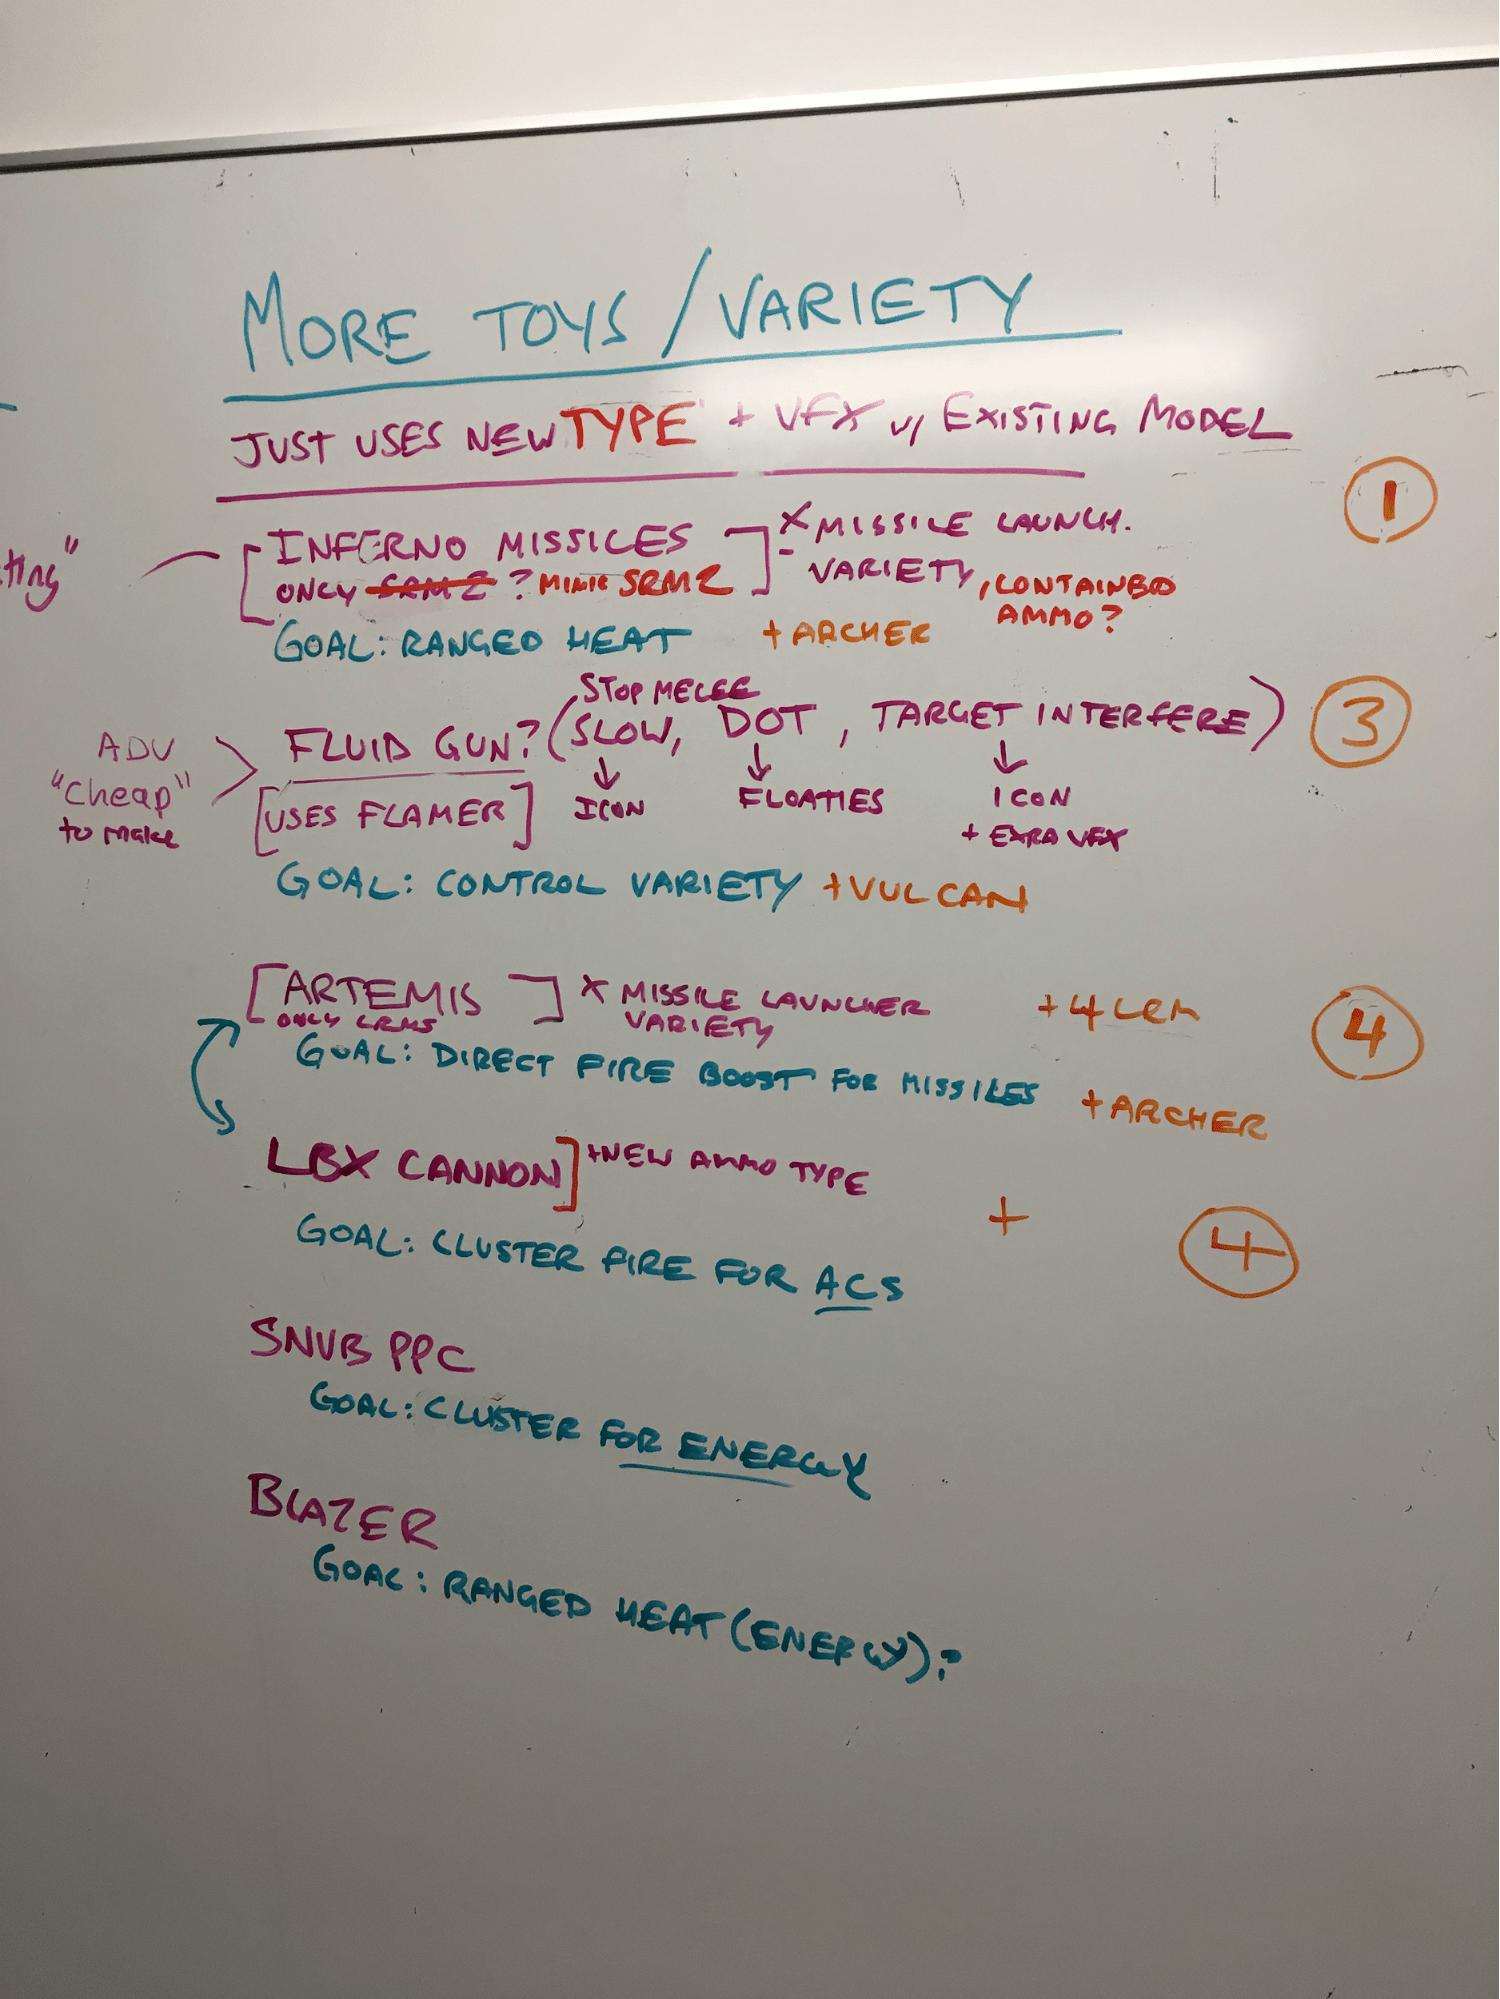 MORE TOYS / VARIETY
JUST USES NEW TYPE + VFX w/ EXISTING MODEL
1
[INFERNO MISSILES] X MISSILE LAUNCH.
ting"
ONLY SRM2 ? MIMIC SRM2 - VARIETY, CONTAINED
AMMO?
GOAL: RANGED HEAT + ARCHER
STOP MELEE
FLUID GUN? (SLOW, DOT, TARGET INTERFERE) 3
ADV
"Cheap"
to make
[USES FLAMER] ↓ ICON ↓ FLOATIES ↓ ICON
+ EXRA VFX
GOAL: CONTROL VARIETY + VULCAN
[ARTEMIS] X MISSILE LAUNCHER + 4 LRM 4
ONLY LRMS VARIETY
GOAL: DIRECT FIRE BOOST FOR MISSILES + ARCHER
LBX CANNON] + NEW AMMO TYPE
+ 4
GOAL: CLUSTER FIRE FOR ACS
SNUB PPC
GOAL: CLUSTER FOR ENERGY
BLAZER
GOAL: RANGED HEAT (ENERGY)?